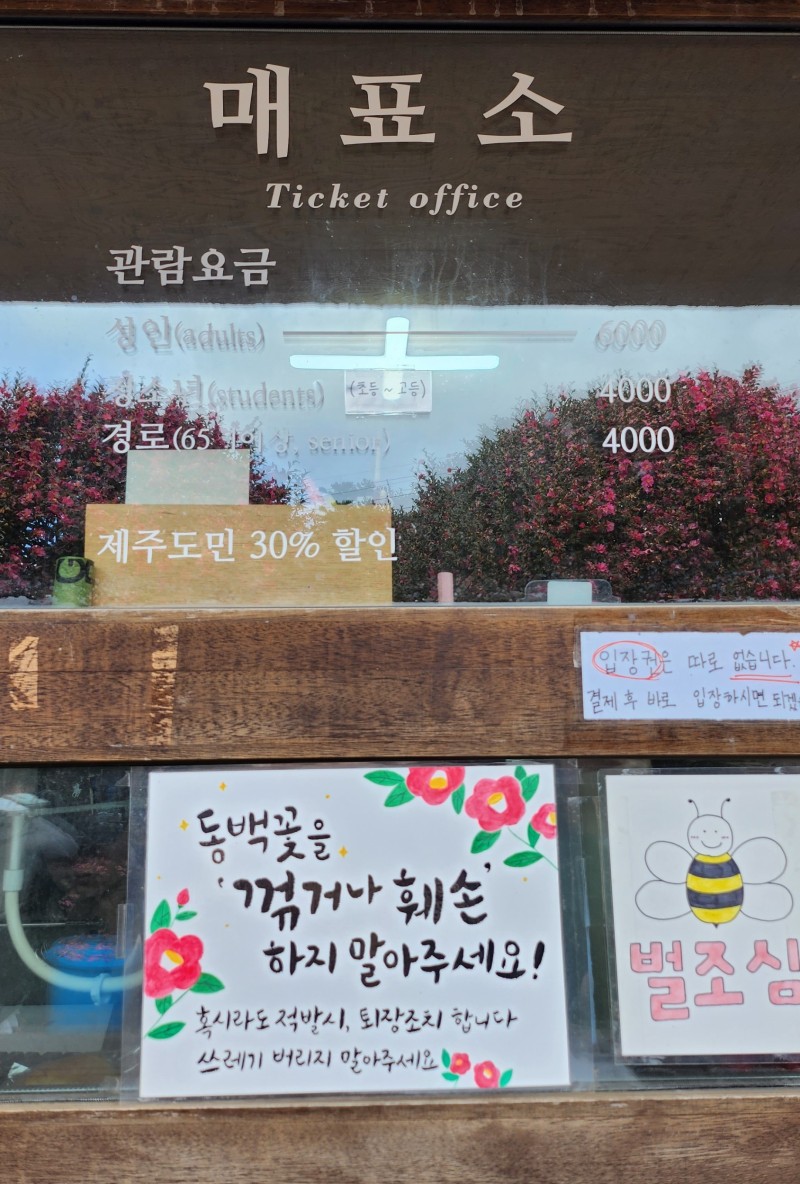 매표소
Ticket office
관람요금
성인(adults) 6000
청소년(students) (초등~고등) 4000
경로(65세이상, senior) 4000
제주도민 30% 할인
입장권은 따로 없습니다.
결제 후 바로 입장하시면 되겠
동백꽃을
'꺾거나 훼손'
하지 말아주세요!
혹시라도 적발시, 퇴장조치 합니다
쓰레기 버리지 말아주세요
벌조심